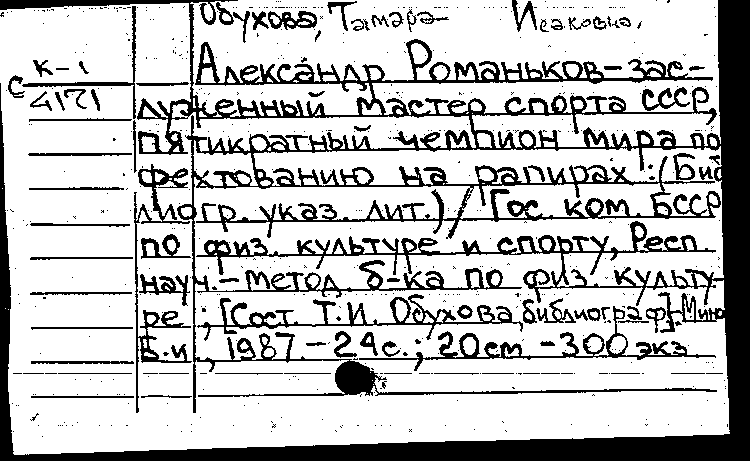 Обухова, Тамара Исаковна.
К-1
С 4171
Александр Романьков-зас-
луженный мастер спорта СССР,
пятикратный чемпион мира по
фехтованию на рапирах :(Биб
лиогр. указ. лит.) / Гос. ком. БССР
по физ. культуре и спорту, Респ.
науч.-метод. б-ка по физ. культу-
ре ; [Сост. Т.И. Обухова, библиограф].-Минск
Б.и., 1987.-24с.; 20см -300 экз